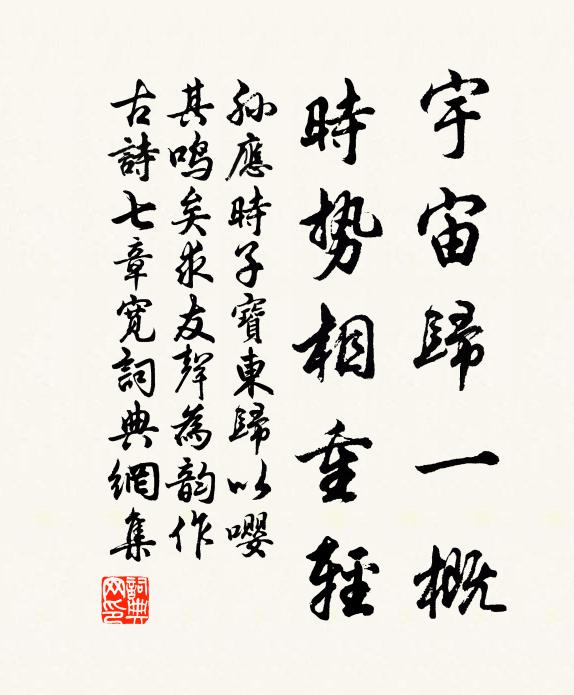 宇宙歸一概
時勢相重輕
孫應時子寶東歸以嚶
其鳴矣求友聲為韵作
古詩七章寬詞典網集
詞典網印